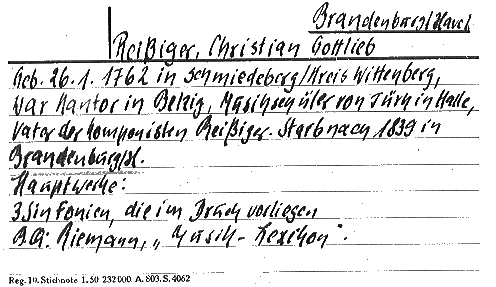 Brandenburg/Havel
Reißiger, Christian Gottlieb
Geb. 26.1. 1762 in Schmiedeberg/Kreis Wittenberg,
War Kantor in Belzig, Musikschüler von Türk in Halle,
Vater der Komponisten Reißiger. Starb nach 1839 in
Brandenburg/H.
Hauptwerke:
3 Sinfonien, die im Druck vorliegen
B.Q: Riemann, „Musik-Lexikon".
Reg. 10. Stichnote 1. 50 232000 A. 803. S. 4062